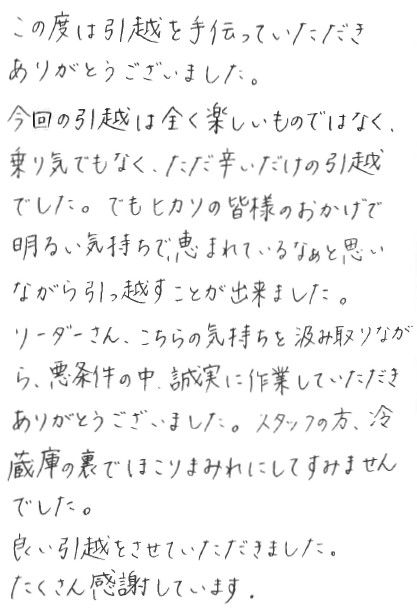 この度は引越を手伝っていただき
ありがとうございました。
今回の引越は全く楽しいものではなく、
乗り気でもなく、ただ辛いだけの引越
でした。でもヒカリの皆様のおかげで
明るい気持ちで、恵まれているなぁと思い
ながら引っ越すことが出来ました。
リーダーさん、こちらの気持ちを汲み取りなが
ら、悪条件の中、誠実に作業していただき
ありがとうございました。スタッフの方、冷
蔵庫の裏でほこりまみれにしてすみません
でした。
良い引越をさせていただきました。
たくさん感謝しています.